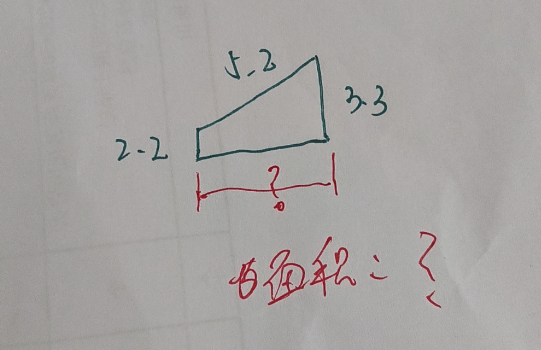 5.2
3.3
2.2
?
面积=?